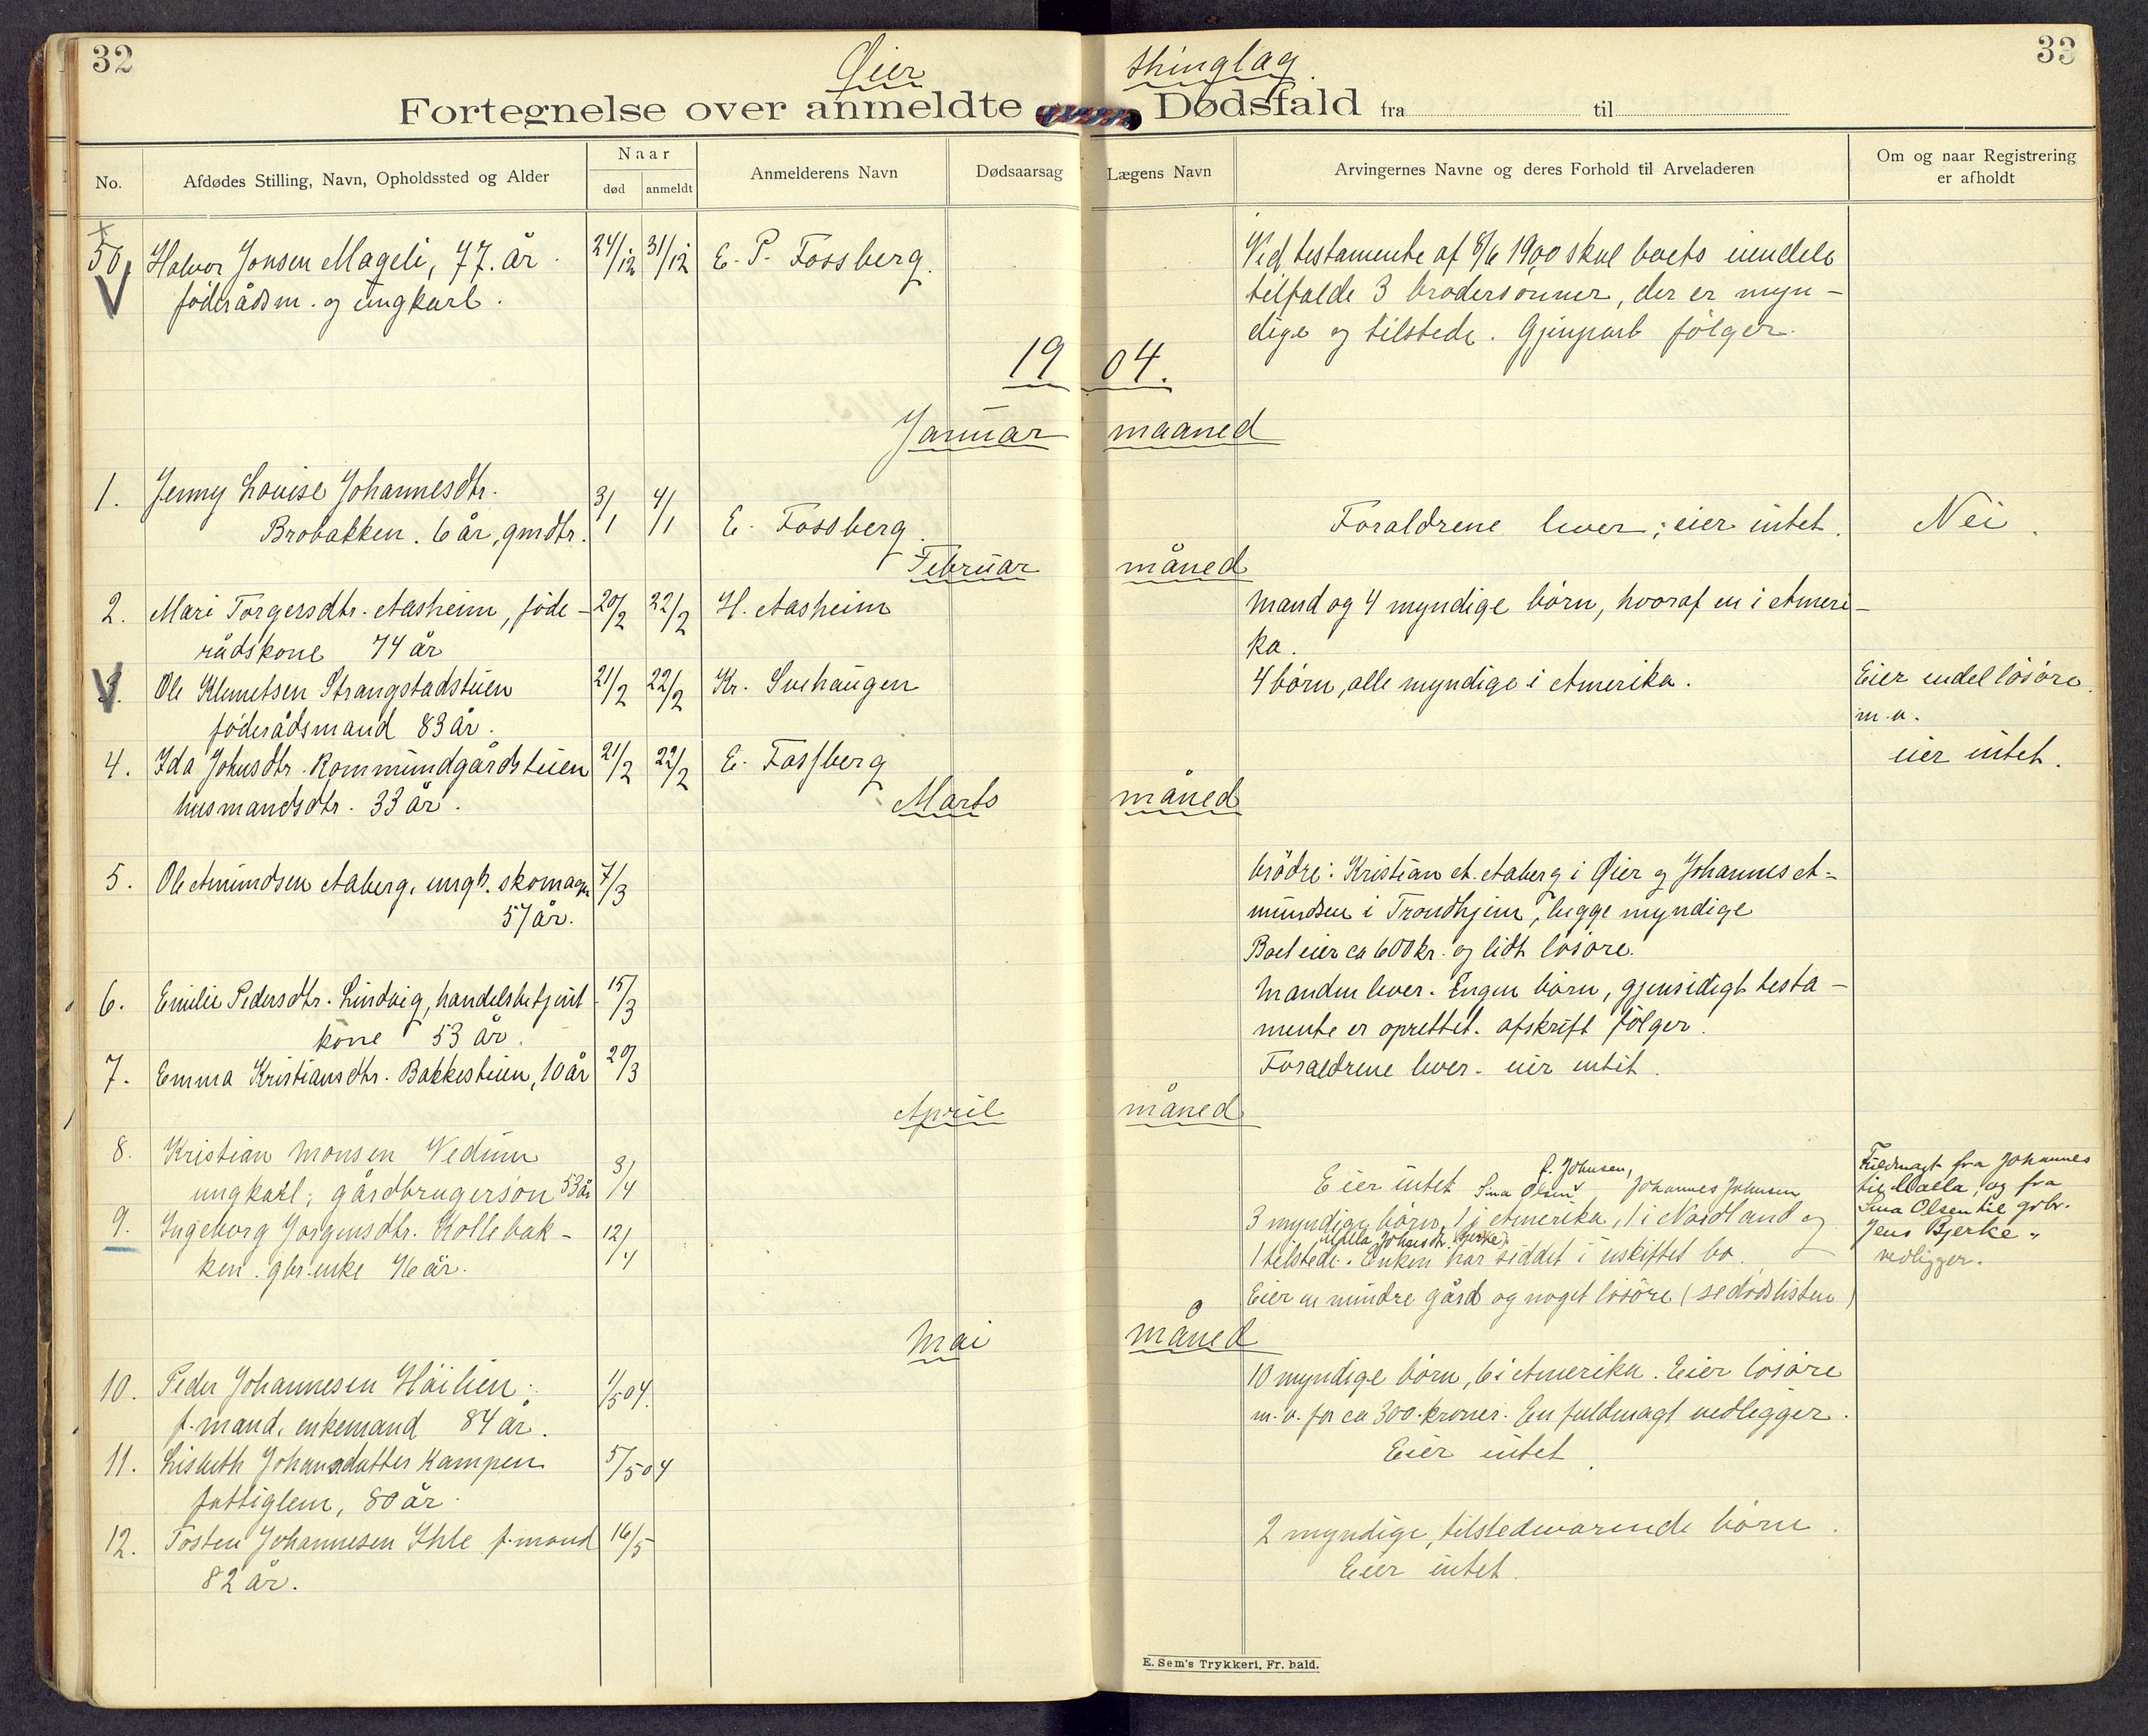 32
33
Øier thinglag.
Fortegnelse over anmeldte Dødsfald fra til
No.
Afdødes Stilling, Navn, Opholdssted og Alder
Naar
død
anmeldt
Anmelderens Navn
Dødsaarsag
Lægens Navn
Arvingernes Navne og deres Forhold til Arveladeren
Om og naar Registrering
er afholdt
50. Halvor Jonsen Mageli, 77. år. 24/12 31/12 E. P. Fossberg. Ved testamente af 8/6 1900 skal boets eiendele
föderådsm. og ungkarl. tilfalde 3 brodersønner, der er myn-
dige og tilstede. Gjenpart følger.
1904.
Januar maaned
1. Jenny Louise Johannesdtr.
Brobakken. 6 år, gmdtr. 3/1 4/1 E. Fossberg. Foraldrene lever; eier intet. Nei.
Februar måned
2. Mari Torgersdtr. Aasheim, føde- 20/2 22/2 H. Aasheim Mand og 4 myndige børn, hvoraf en i Ameri-
rådskone 74 år ka.
3. Ole Klemetsen Strangstadstuen 21/2 22/2 Kr. Svehaugen 4 børn, alle myndige i Amerika. Eier endel løsøre
föderådsmand 83 år. m.v.
4. Ida Johnsdtr. Rommundgårdstuen 21/2 22/2 E. Fossberg eier intet.
husmandsdtr. 33 år.
Marts måned
5. Ole Amundsen Aaberg, ungk. skomager 7/3 brödre: Kristian A. Aaberg i Øier og Johannes A-
57 år. mundsen i Trondhjem, begge myndige
Boet eier ca 600 kr. og lidt løsøre.
6. Emilie Pedersdtr. Lindvig, handelsbetjent 15/3 Manden lever. Ingen børn, gjensidigt testa-
kone 53 år. mente er oprettet. afskrift følger.
7. Emma Kristiansdtr. Bakkestuen, 10 år 20/3 Foraldrene lever. eier intet.
April måned
8. Kristian Monsen Vedum
ungkarl, gårdbrugersøn 53 år 3/4 Eier intet
f. Johnsen,
Sina Olsen Johannes Johnsen
9. Ingeborg Jørgensdtr. Kollebak- 12/4 3 myndige børn, 1 i Amerika, 1 i Nordland og
Johnsdtr. Bjerke
ken. gbr.enke 76 år. 1 tilstede. Enken har siddet i uskiftet bo.
Eier en mindre gård og noget løsøre (se dødslisten)
Fuldmagt fra Johannes
til og fra
Sina Olsen til gbr.
Jens Bjerke
vedligger.
Mai måned
10. Peder Johannesen Häilien. 1/5 04. 10 myndige børn, 6 i Amerika. Eier løsøre
f.mand, enkemand 84 år. m.v. for ca 300 kroner. En fuldmagt vedligger.
11. Lisbeth Johansdatter Kampen 5/5 04 Eier intet.
fattiglem, 80 år.
12. Tosten Johannesen Ihle f.mand 16/5 2 myndige, tilstedeværende børn.
82 år. Eier intet.
E. Sem's Trykkeri, Fr.hald.